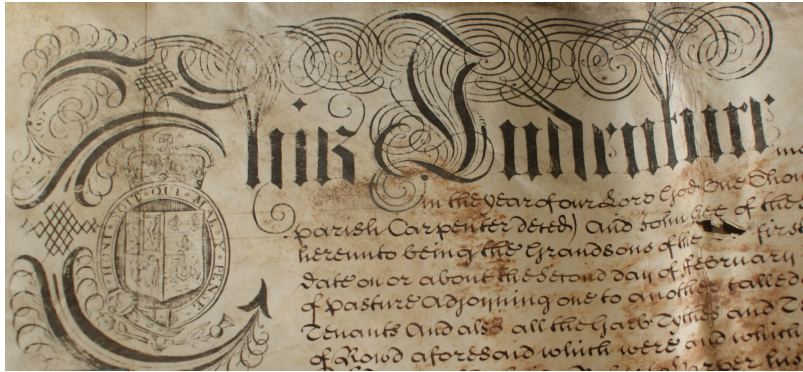 This Indenture
HONI SOIT QUI MAL Y PENSE
in the year of our Lord God One Thou
parish Carpenter deced) And John Lee of the
hereunto being the Grandsons of the first
date on or about the Second day of February
of pasture Adjoyning one to another called
Tenants And also all the Garb Tythes and
of Rowd aforesaid which were and which